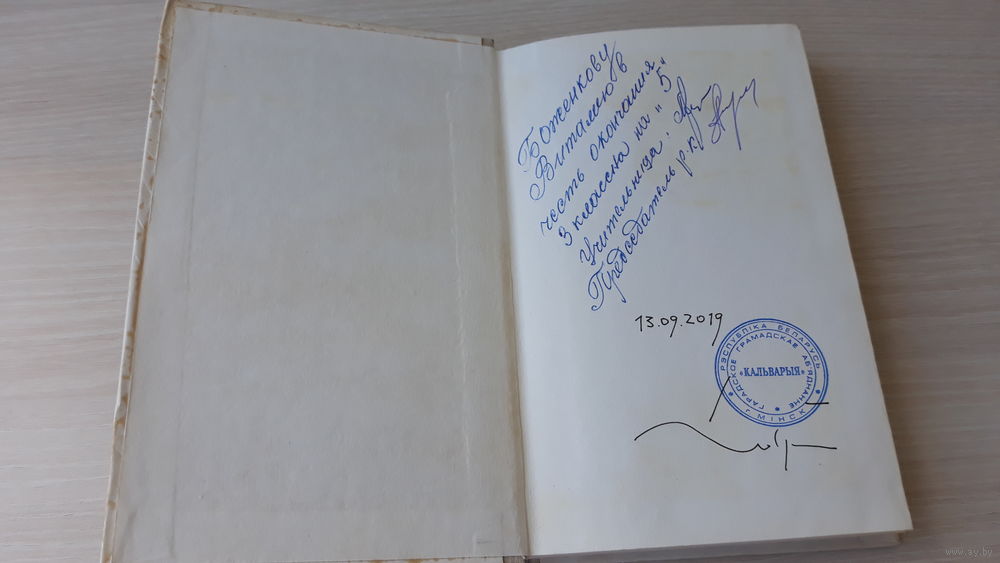 Боженкову
Виталию в
честь окончания
3 класса на "5"
Учительница:
Председатель р.к.
13.09.2019
РЭСПУБЛІКА БЕЛАРУСЬ
ГАРАДСКОЕ ГРАМАДСКАЕ АБ'ЯДНАННЕ
«КАЛЬВАРЫЯ»
г. МІНСК
www.ay.by